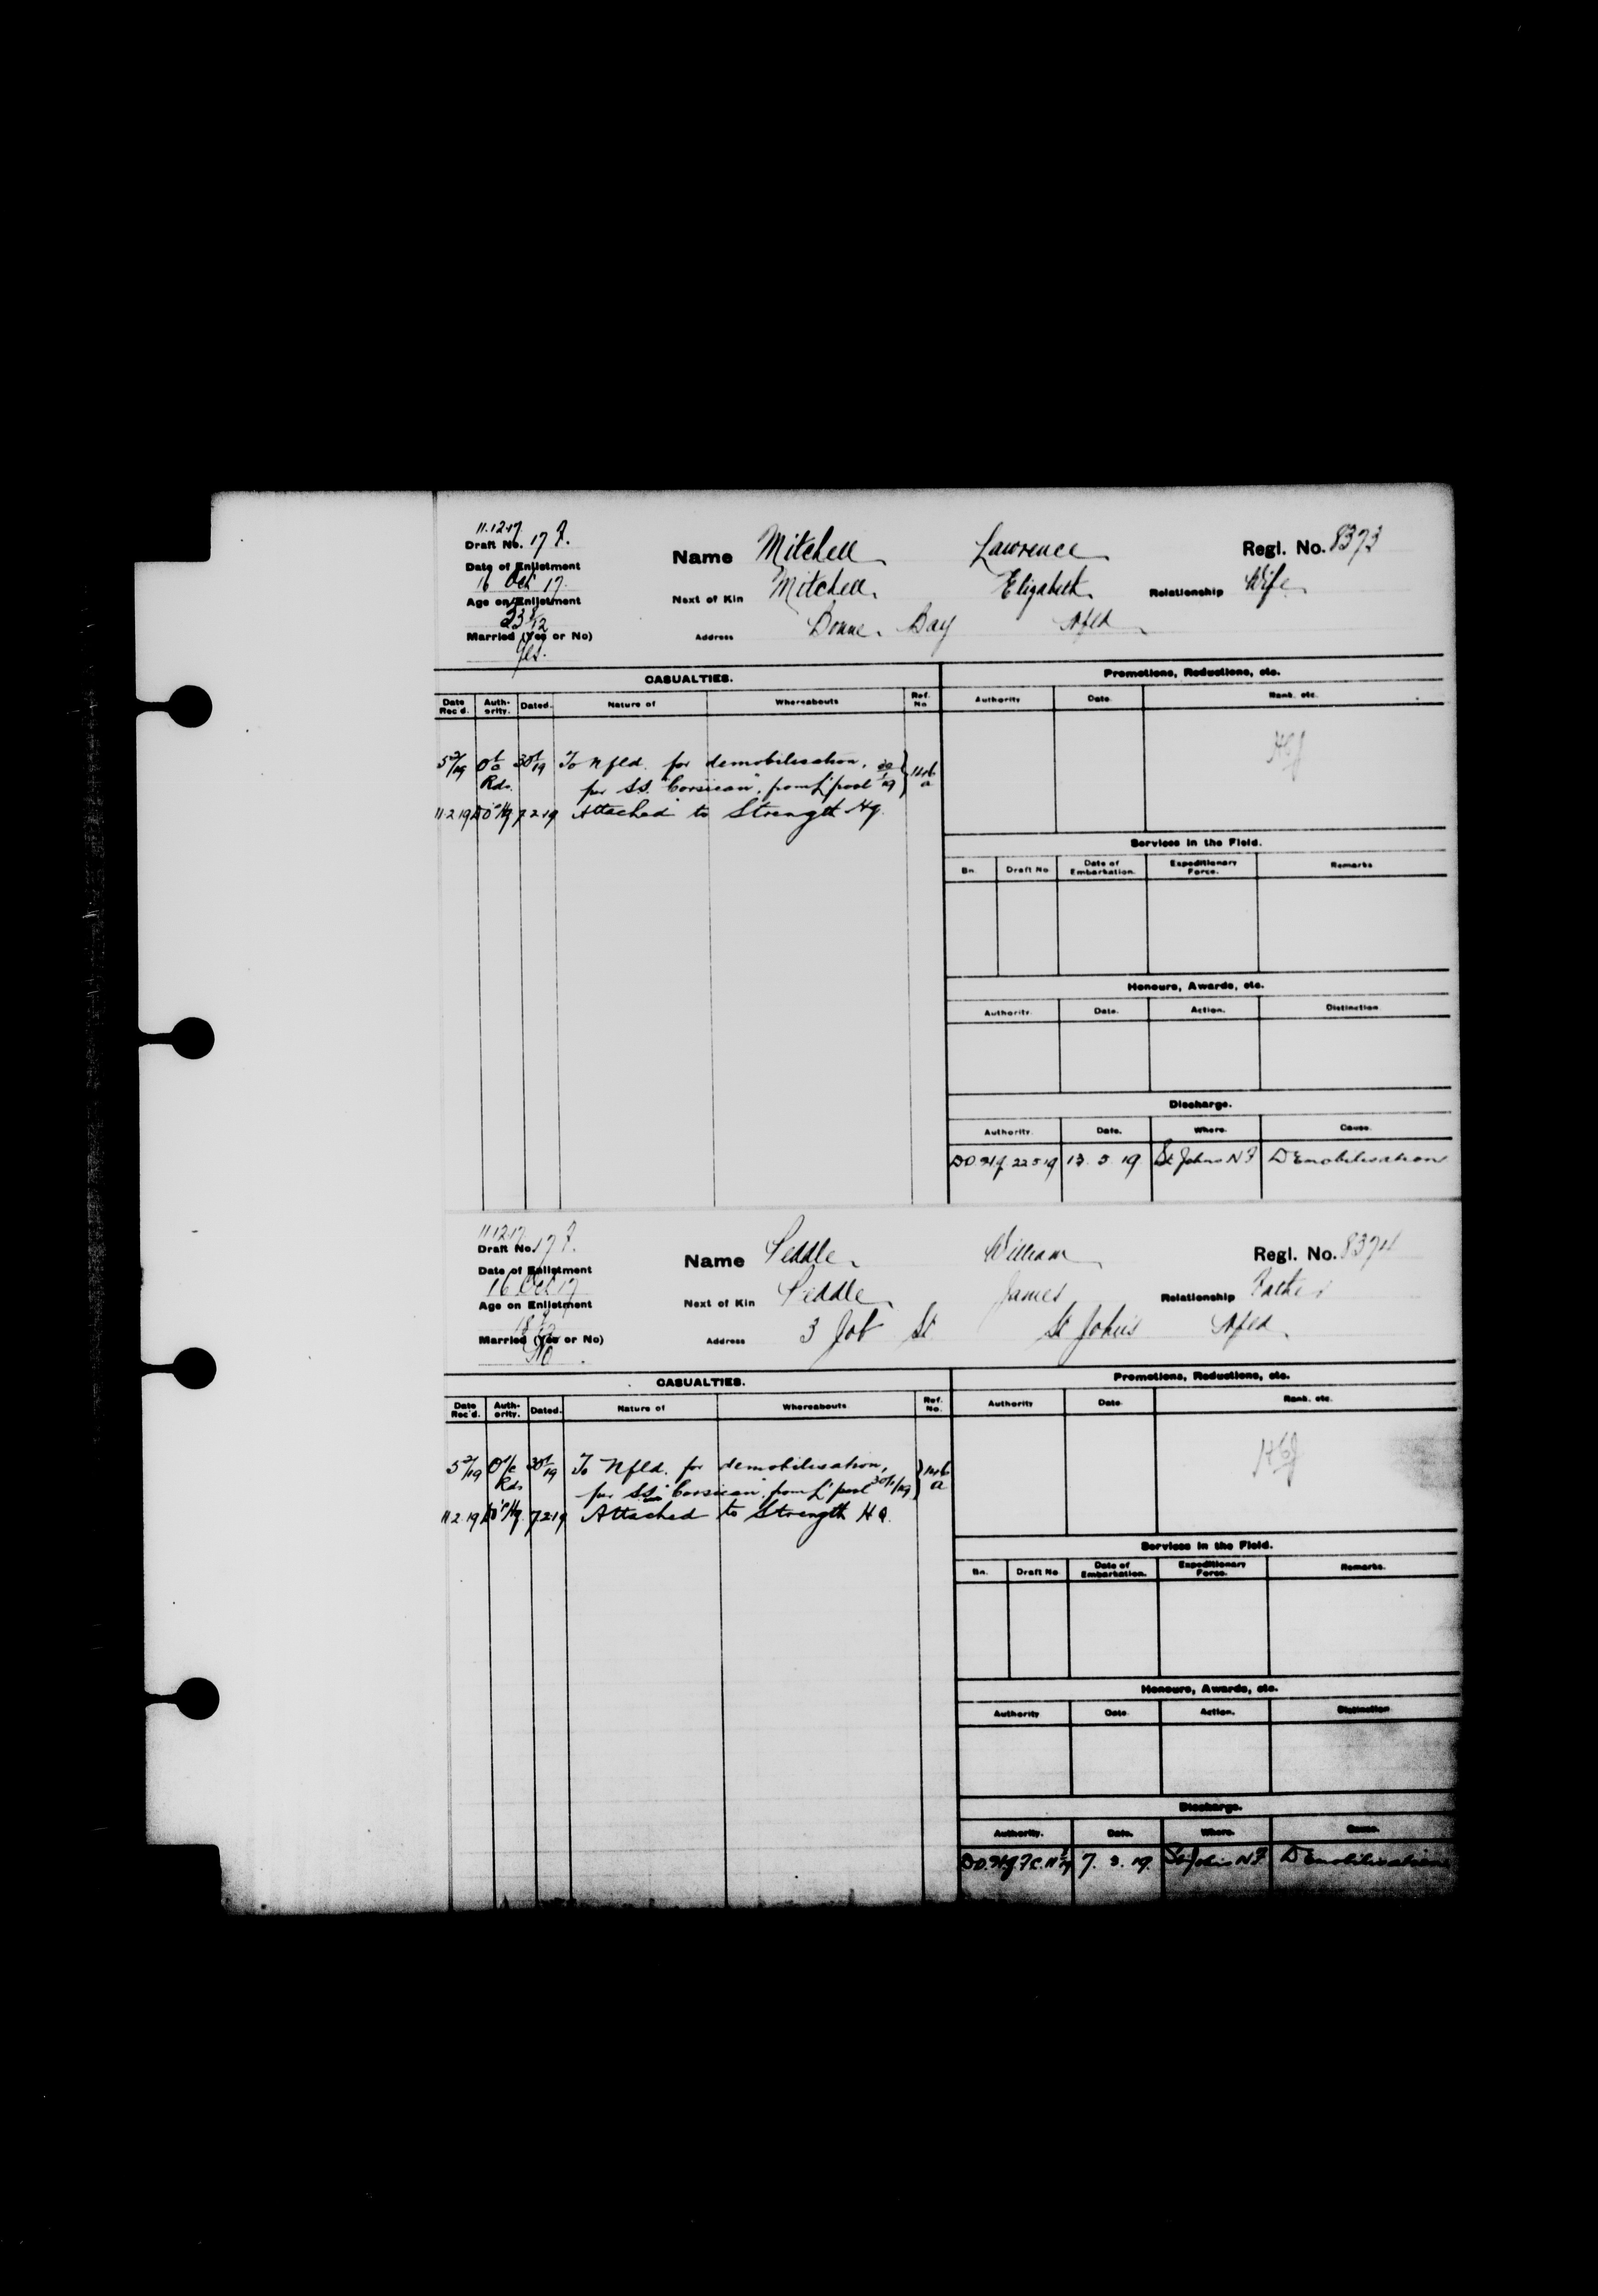 11.12.17
Draft No. 17 F.
Name Mitchell Lawrence Regl. No. 8373
Date of Enlistment
16 Oct 17.
Next of Kin Mitchell, Elizabeth, Relationship Wife
Age on Enlistment
23
Address Bonne Bay Nfld
Married (Yes or No)
Yes.
CASUALTIES. Promotions, Reductions, etc.
Date Rec'd. Auth-ority. Dated. Nature of Whereabouts Ref. No Authority Date Rank, etc.
5 2/19 O i/c Rds. 30 1/19 To Nfld. for demobilisation,
per S.S. "Corsican", from L'pool 30/1/19
11.2.19 7.2.19 Attached to Strength Hq.
Services in the Field.
Bn. Draft No Date of Embarkation. Expeditionary Force. Remarks
Honours, Awards, etc.
Authority. Date. Action. Distinction
Discharge.
Authority. Date. Where. Cause.
D.O. Hq 22 5 19 13. 5. 19 St Johns N F Demobilisation
11 12 17
Draft No. 17 F.
Name Peddle, William Regl. No. 8374
Date of Enlistment
16 Oct 17
Next of Kin Peddle James Relationship Father
Age on Enlistment
18
Address 3 Job St St John's Nfld
Married (Yes or No)
No
CASUALTIES. Promotions, Reductions, etc.
Date Rec'd. Auth-ority. Dated. Nature of Whereabouts Ref. No. Authority Date Rank, etc.
5 2/19 O i/c Rds 30 1/19 To Nfld. for demobilisation,
per S.S. "Corsican" from L'pool 30/1/19
11 2 19 7 2 19 Attached to Strength H Q.
Services in the Field.
Bn. Draft No Date of Embarkation. Expeditionary Force. Remarks.
Honours, Awards, etc.
Authority Date Action. Distinction
Discharge.
Authority. Date. Where. Cause.
7. 3. 19. St Johns N F Demobilisation